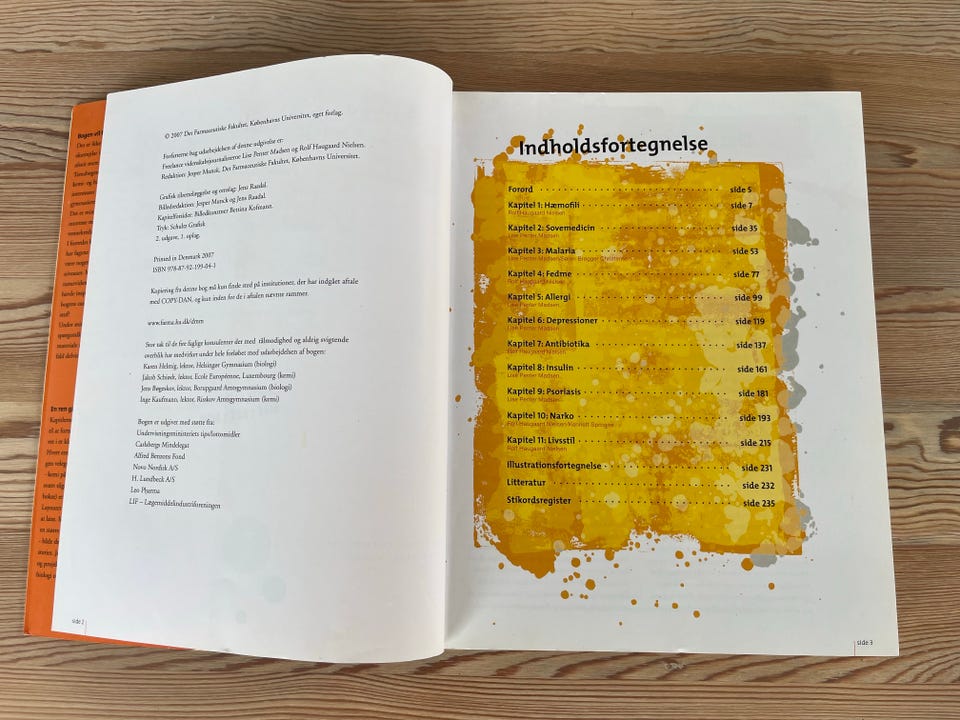 © 2007 Det Farmaceutiske Fakultet, Københavns Universitet, eget forlag.
Forfatterne bag udarbejdelsen af denne udgivelse er:
Freelance videnskabsjournalisterne Lise Penter Madsen og Rolf Haugaard Nielsen.
Redaktion: Jesper Munck, Det Farmaceutiske Fakultet, Københavns Universitet.
Grafisk tilrettelæggelse og omslag: Jens Raadal.
Billedredaktion: Jesper Munck og Jens Raadal.
Kapitelforsider: Billedkunstner Bettina Kofmann.
Tryk: Schultz Grafisk
2. udgave, 1. oplag.
Printed in Denmark 2007
ISBN 978-87-92-199-04-1
Kopiering fra denne bog må kun finde sted på institutioner, der har indgået aftale
med COPY-DAN, og kun inden for de i aftalen nævnte rammer.
www.farma.ku.dk/dmm
Stor tak til de fire faglige konsulenter der med tålmodighed og aldrig svigtende
overblik har medvirket under hele forløbet med udarbejdelsen af bogen:
Karen Helmig, lektor, Helsingør Gymnasium (biologi)
Jakob Schiødt, lektor, Ecole Européenne, Luxembourg (kemi)
Jens Bøgeskov, lektor, Borupgaard Amtsgymnasium (biologi)
Inge Kaufmann, lektor, Risskov Amtsgymnasium (kemi)
Bogen er udgivet med støtte fra:
Undervisningsministeriets tips/lottomidler
Carlsbergs Mindelegat
Alfred Benzons Fond
Novo Nordisk A/S
H. Lundbeck A/S
Leo Pharma
LIF – Lægemiddelindustriforeningen
side 2
Indholdsfortegnelse
Forord side 5
Kapitel 1: Hæmofili side 7
Rolf Haugaard Nielsen
Kapitel 2: Sovemedicin side 35
Lise Penter Madsen
Kapitel 3: Malaria side 53
Lise Penter Madsen/Søren Brøgger Christensen
Kapitel 4: Fedme side 77
Rolf Haugaard Nielsen
Kapitel 5: Allergi side 99
Lise Penter Madsen
Kapitel 6: Depressioner side 119
Lise Penter Madsen
Kapitel 7: Antibiotika side 137
Rolf Haugaard Nielsen
Kapitel 8: Insulin side 161
Lise Penter Madsen
Kapitel 9: Psoriasis side 181
Lise Penter Madsen
Kapitel 10: Narko side 193
Rolf Haugaard Nielsen/Kenneth Springer
Kapitel 11: Livsstil side 215
Rolf Haugaard Nielsen
Illustrationsfortegnelse side 231
Litteratur side 232
Stikordsregister side 235
side 3